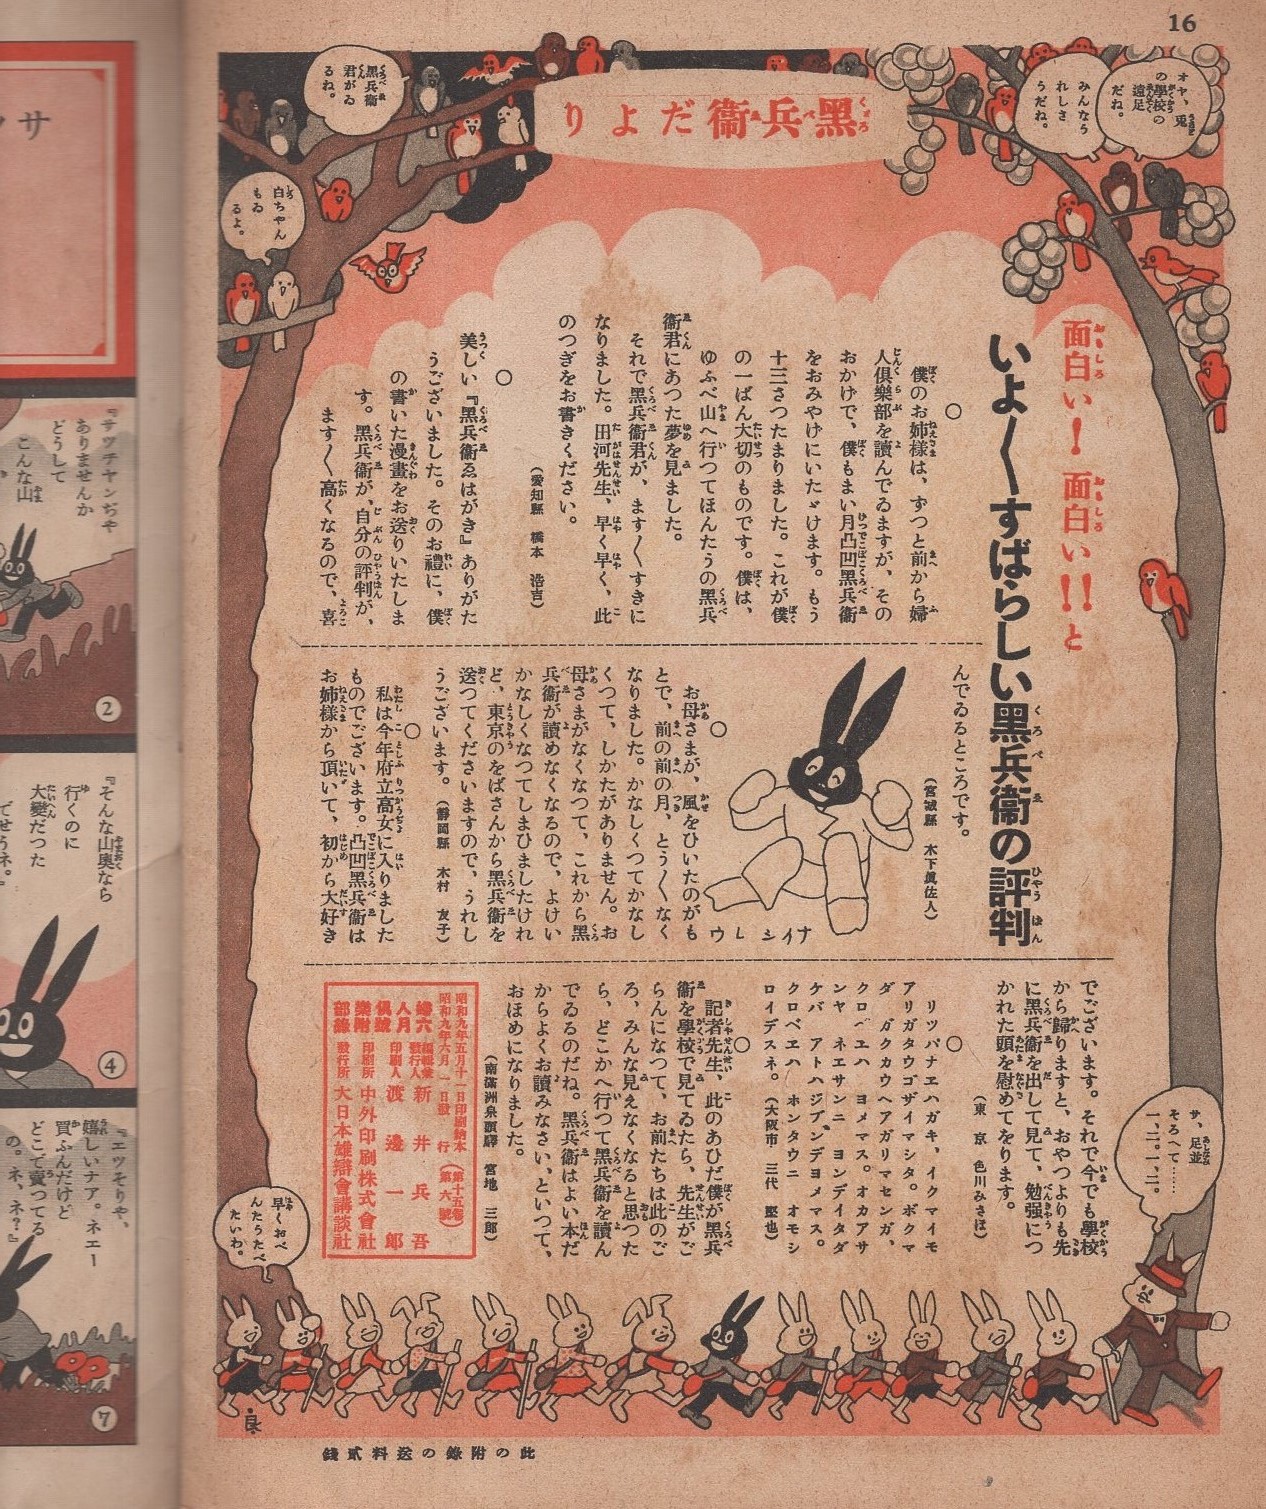 16
黑兵衞だより
オヤ、兎
の學校の
遠足
だね。
みんなう
れしさ
うだね。
黑兵衞
君がゐ
るね。
白ちやん
もゐ
るよ。
面白い！面白い!!と
いよ〳〵すばらしい黑兵衞の評判
○
僕のお姉樣は、ずつと前から婦
人倶樂部を讀んでゐますが、その
おかげで、僕もまい月凸凹黑兵衞
をおみやげにいたゞけます。もう
十三さつたまりました。これが僕
の一ばん大切のものです。僕は、
ゆふべ山へ行つてほんたうの黑兵
衞君にあつた夢を見ました。
それで黑兵衞君が、ます〳〵すきに
なりました。田河先生、早く早く、此
のつぎをお書きください。
（愛知縣 橋本 浩吉）
○
美しい『黑兵衞ゑはがき』ありがた
うございました。そのお禮に、僕
の書いた漫畫をお送りいたしま
す。黑兵衞が、自分の評判が、
ます〳〵高くなるので、喜
んでゐるところです。
（宮城縣 木下眞佐人）
ウレシイナ
○
お母さまが、風をひいたのがも
とで、前の前の月、とう〳〵なく
なりました。かなしくつてかなし
くつて、しかたがありません。お
母さまがなくなつて、これから黑
兵衞が讀めなくなるので、よけい
かなしくなつてしまひましたけれ
ど、東京のをばさんから黑兵衞を
送つてくださいますので、うれし
うございます。（靜岡縣 木村 友子）
○
私は今年府立高女に入りました
ものでございます。凸凹黑兵衞は
お姉樣から頂いて、初から大好き
でございます。それで今でも學校
から歸りますと、おやつよりも先
に黑兵衞を出して見て、勉强につ
かれた頭を慰めてをります。
（東京 色川みさほ）
○
リツパナヱハガキ、イクマイモ
アリガタウゴザイマシタ。ボクマ
ダ ガクカウヘアガリマセンガ、
クロベヱハ ヨメマス。オカアサ
ンヤ ネエサンニ ヨンデイタダ
ケバ アトハジブンデヨメマス。
クロベヱハ ホンタウニ オモシ
ロイデスネ。（大阪市 三代 堅也）
○
記者先生、此のあひだ僕が黑兵
衞を學校で見てゐたら、先生がご
らんになつて、お前たちは此のご
ろ、みんな見えなくなると思つた
ら、どこかへ行つて黑兵衞を讀ん
でゐるのだね。黑兵衞はよい本だ
からよくお讀みなさい、といつて、
おほめになりました。
（南滿洲 宮地 三郎）
昭和九年五月十一日印刷納本
昭和九年六月一日發行（第十五卷第六號）
婦人倶樂部
六月號附錄
編輯兼發行人 新井兵吾
印刷人 渡邊一郎
印刷所 中外印刷株式會社
發行所 大日本雄辯會講談社
サ、足並
そろへて……
一、二。一、二。
早くおべ
んたうたべ
たいわ。
良
此の附錄の送料貳錢
サ
『サツチヤンぢや
ありませんか
どうして
こんな山
2
『そんな山奥なら
行くのに
大變だつた
でせうネ。』
4
『エツそりや、
嬉しいナア。ネエー
買ふんだけど
どこで賣つてる
の。ネ、ネ？』
7